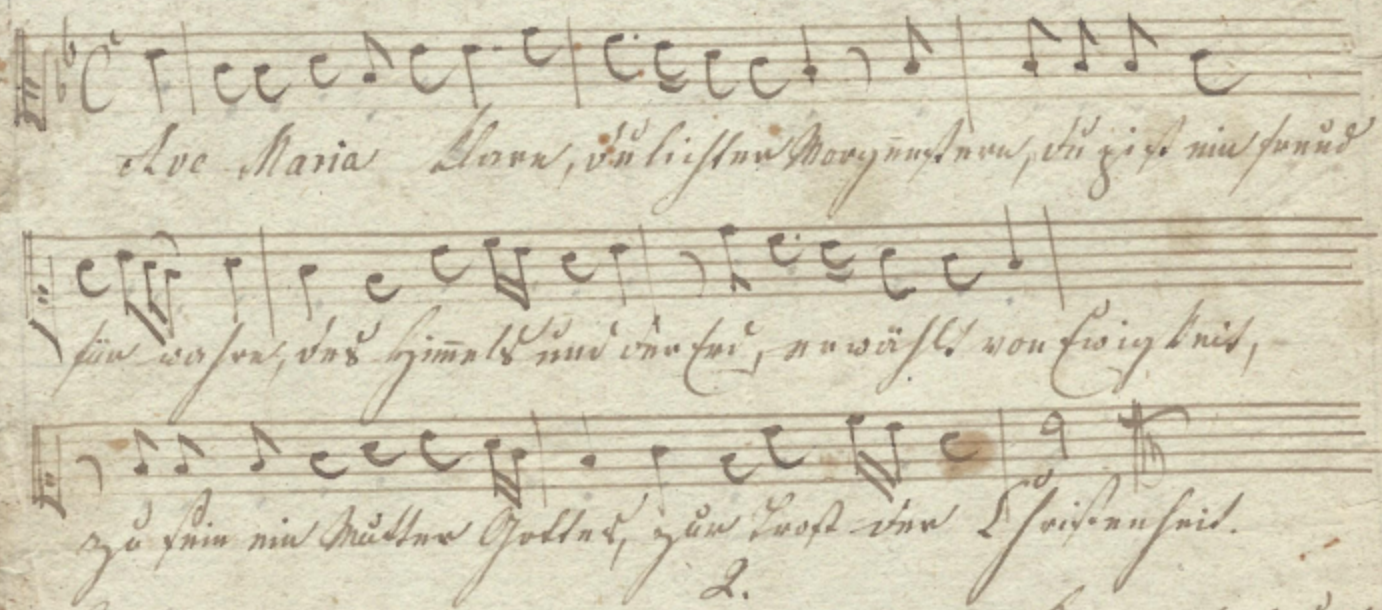 Ave Maria klare, du lichter Morgenstern, du bist ein freud
für wahre, des Himels und der Erd, erwählt von Ewigkeit,
zu sein ein Mutter Gottes, zur Trost der Christenheit.
2.